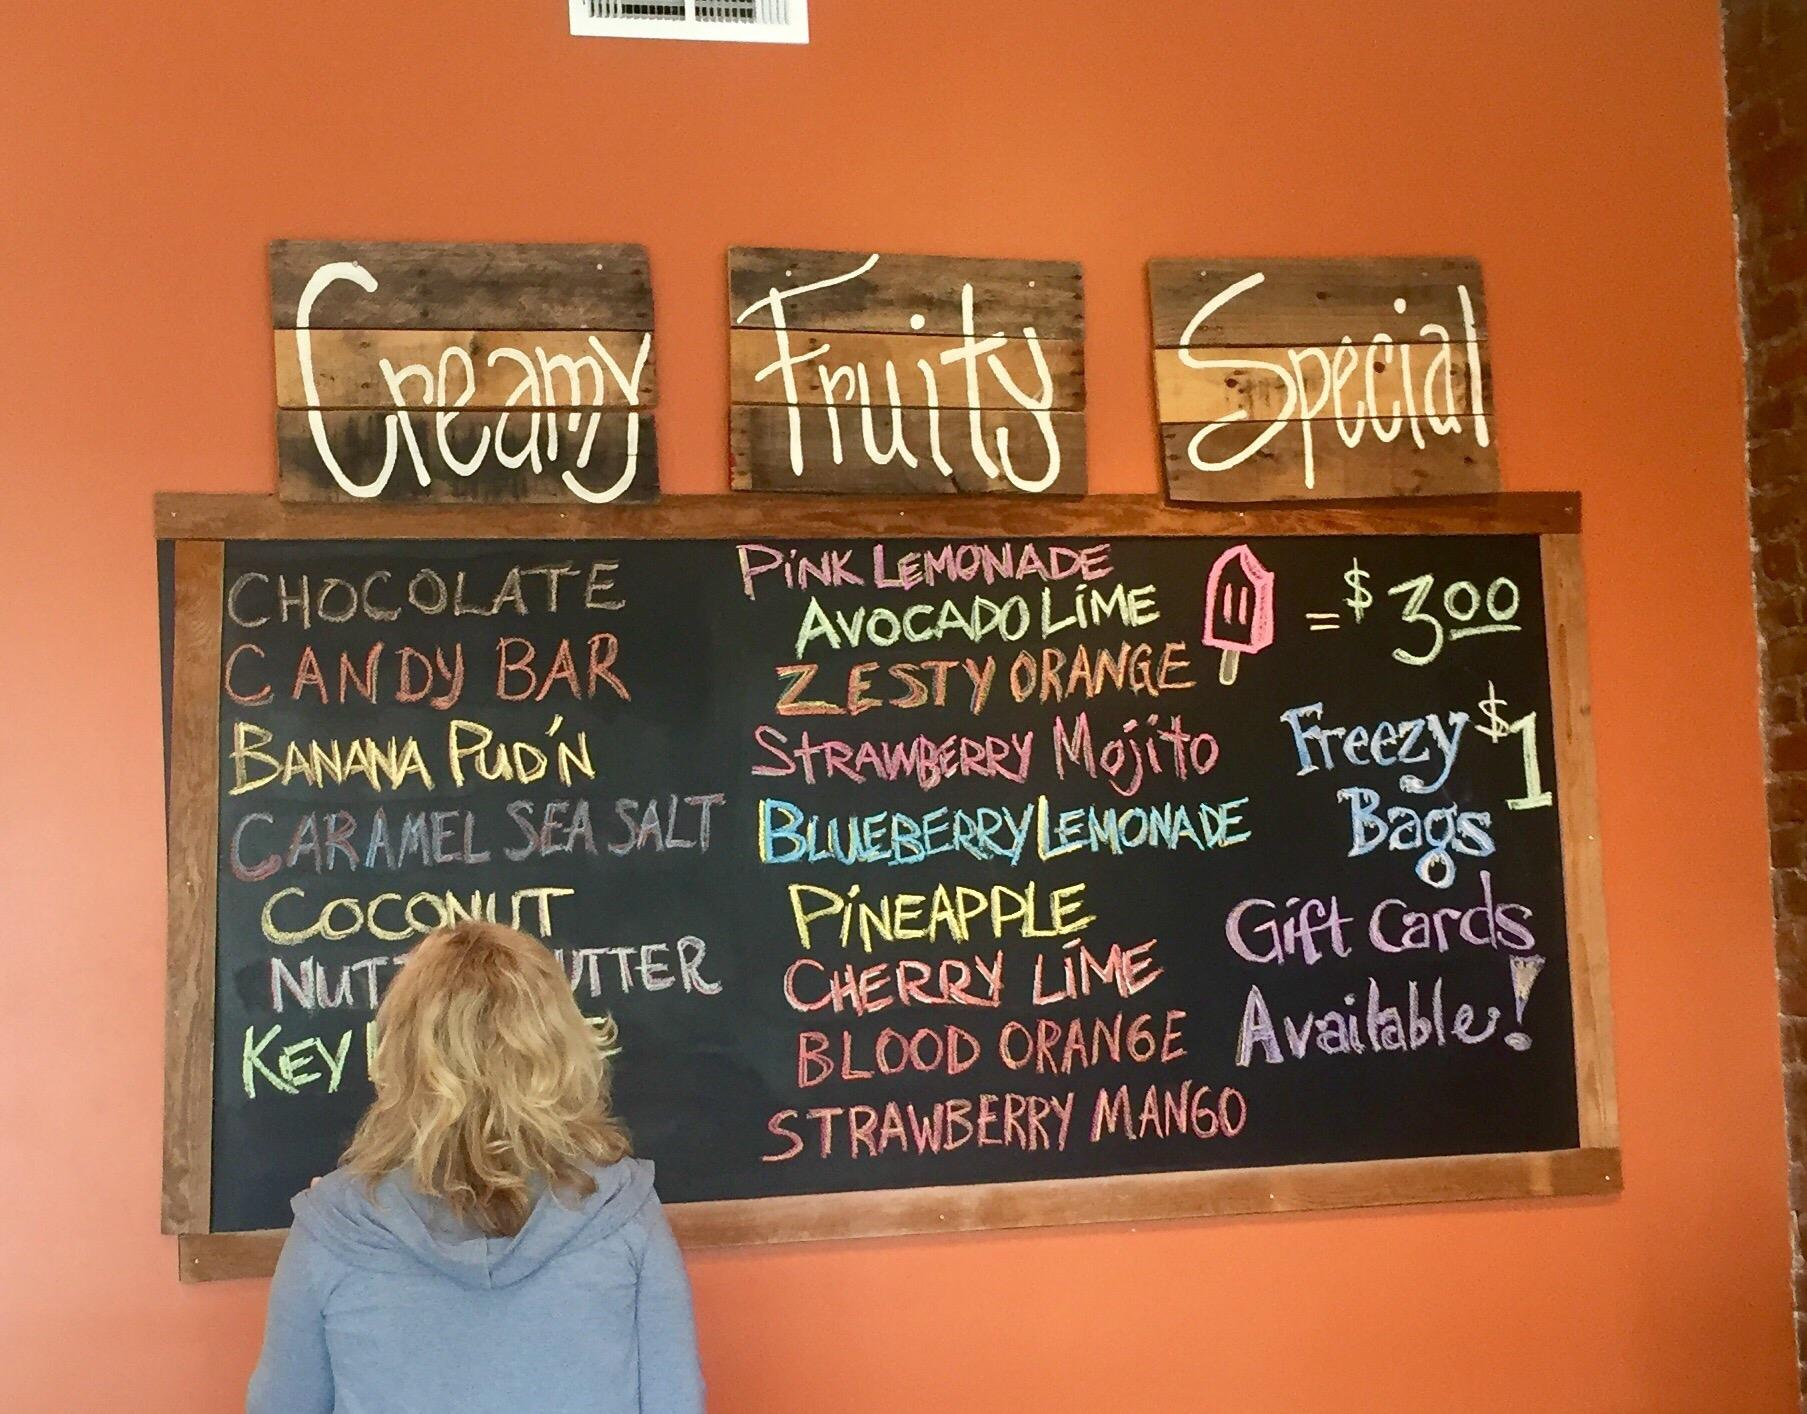 Creamy
Fruity
Special
CHOCOLATE
CANDY BAR
BANANA PUD'N
CARAMEL SEA SALT
COCONUT
KEY
PINK LEMONADE
AVOCADO LIME
ZESTY ORANGE
STRAWBERRY Mojito
BLUEBERRY LEMONADE
PINEAPPLE
CHERRY LIME
BLOOD ORANGE
STRAWBERRY MANGO
= $3.00
Freezy $1
Bags
Gift Cards
Available!